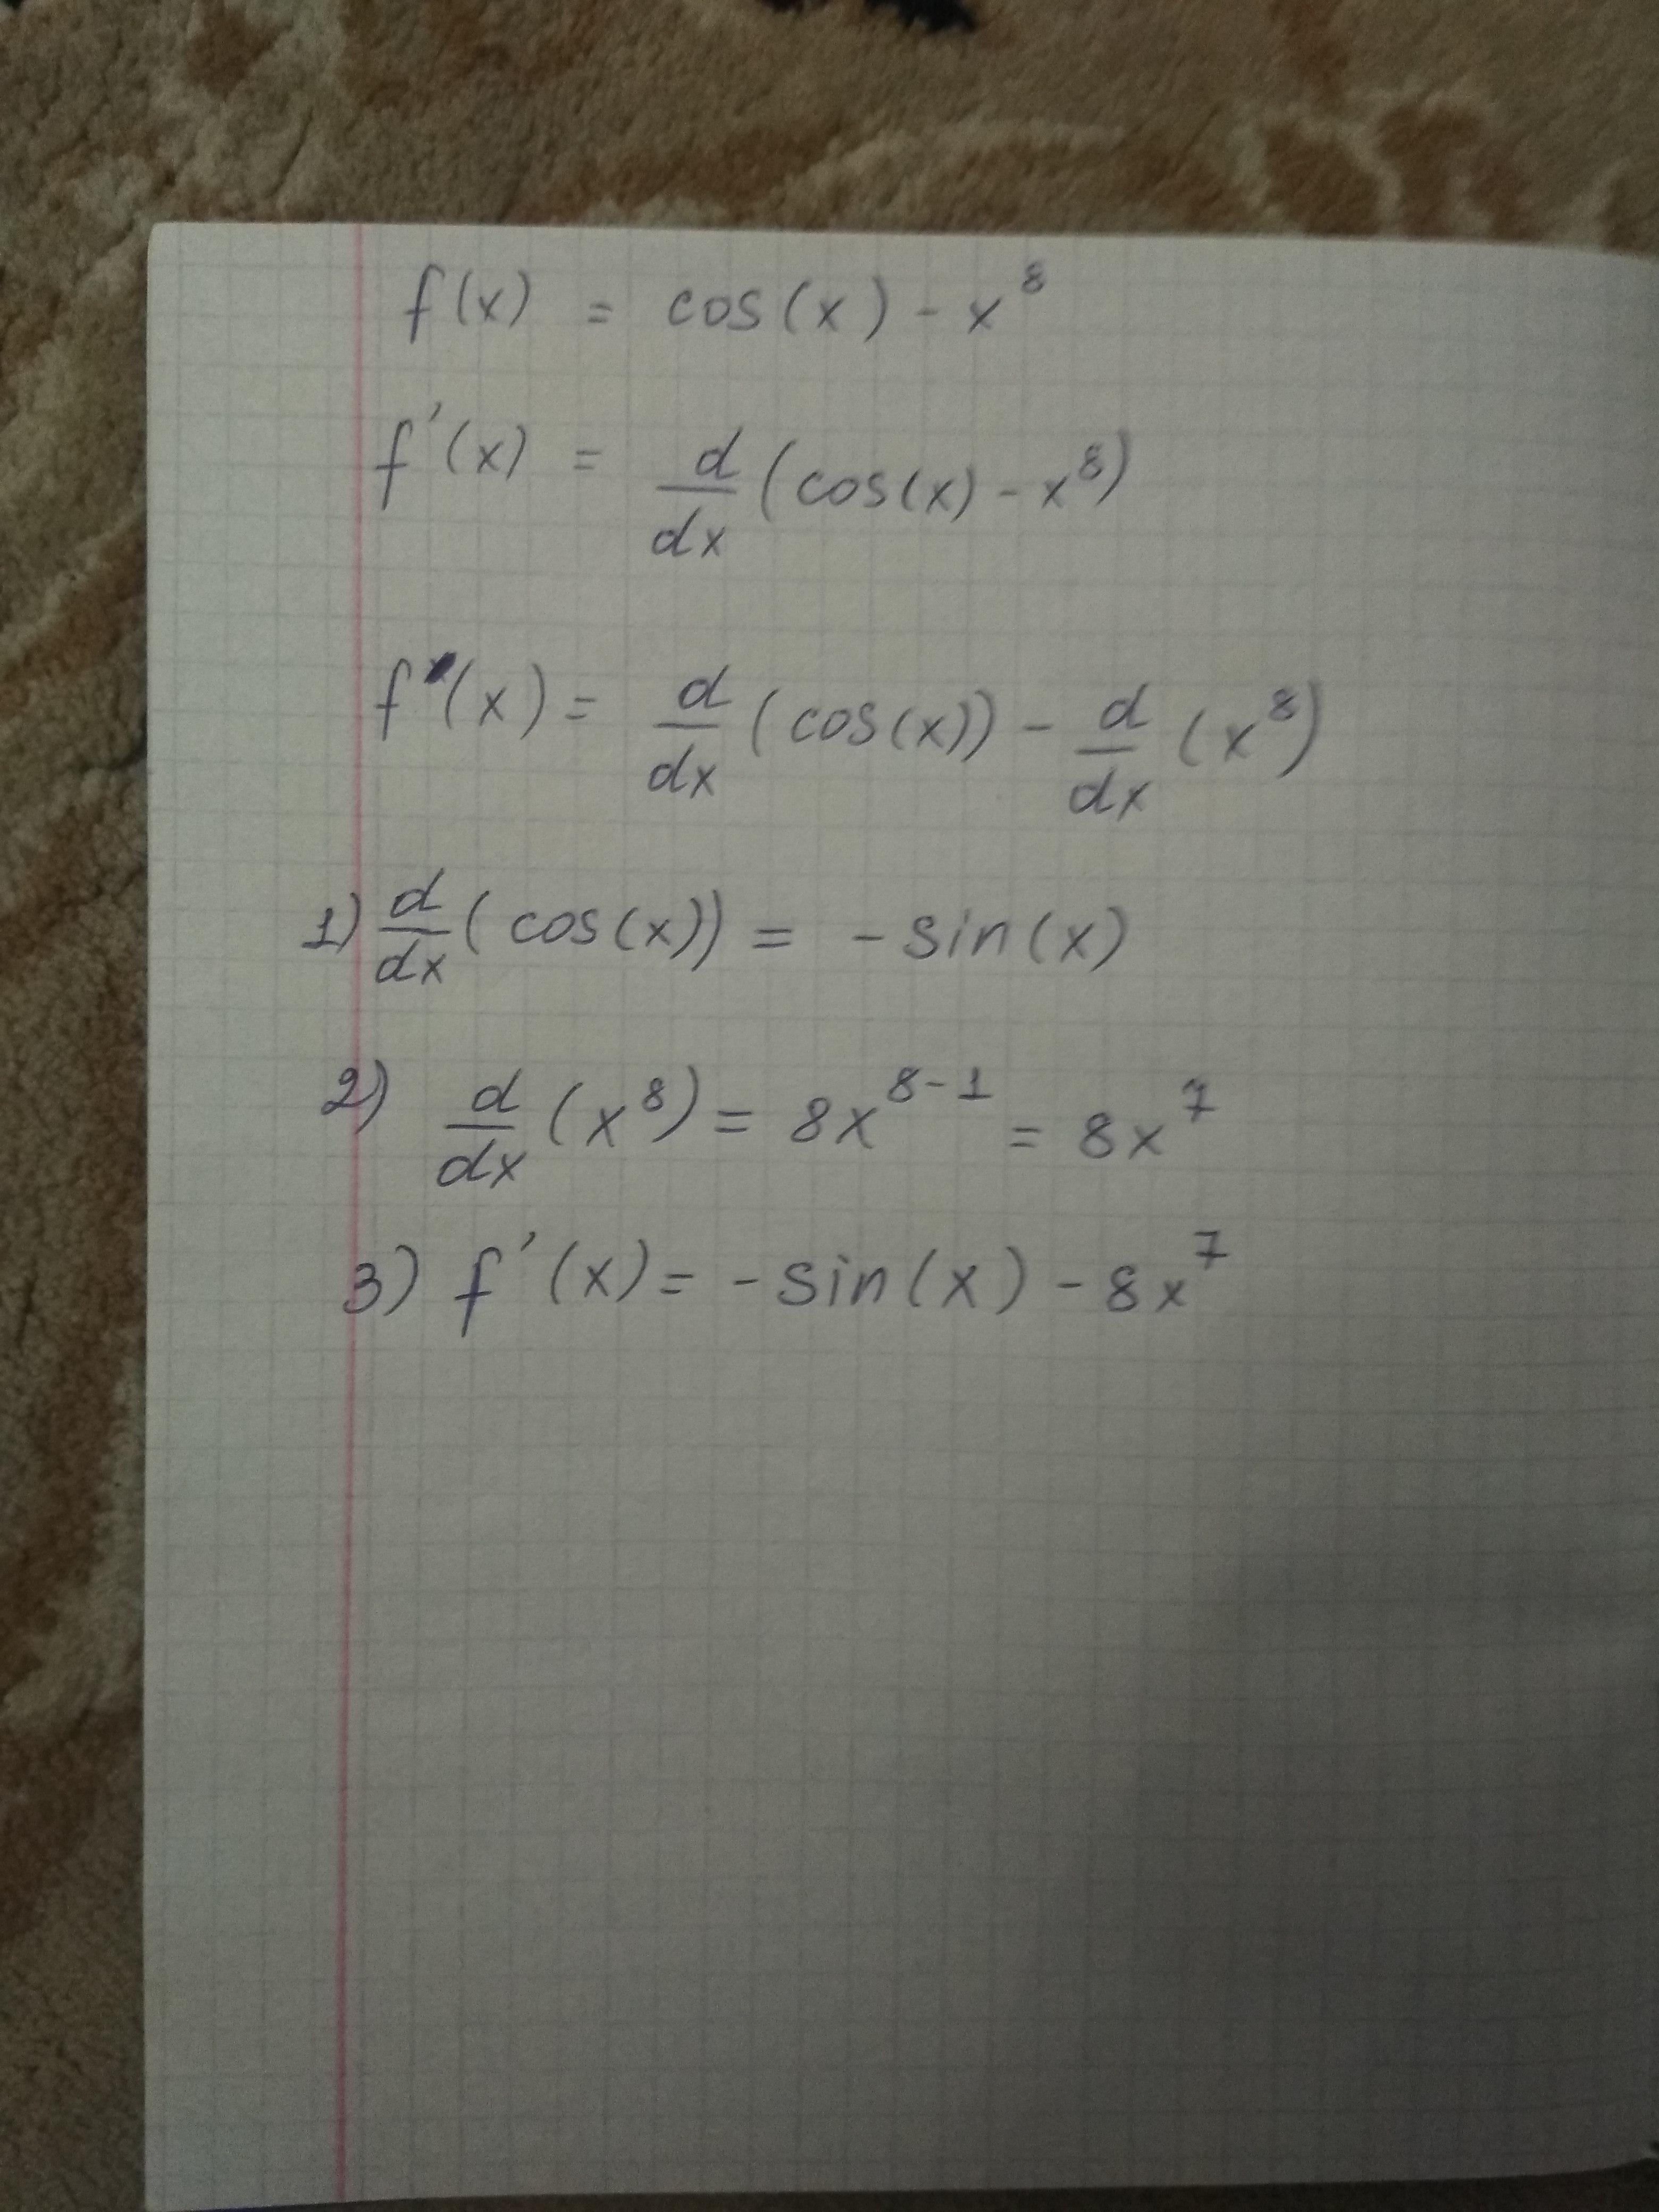 f(x) = cos(x) - x⁸
f'(x) = d/dx (cos(x) - x⁸)
f'(x) = d/dx (cos(x)) - d/dx (x⁸)
1) d/dx (cos(x)) = - sin(x)
2) d/dx (x⁸) = 8x⁸⁻¹ = 8x⁷
3) f'(x) = - sin(x) - 8x⁷